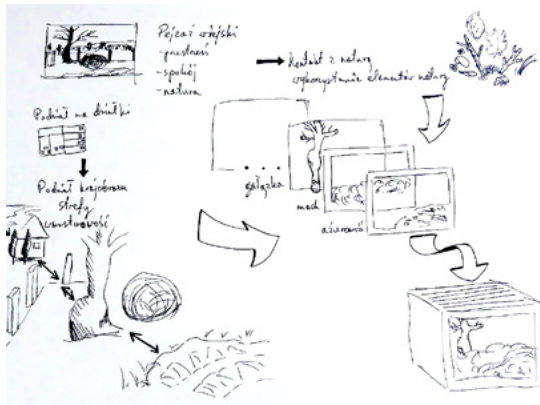 Pejzaż wiejski
-przestrzeń
-spokój
-natura
Kontakt z naturą
wykorzystanie elementów natury
Podział na działki
Podział krajobrazu
strefy
warstwowość
gałązka
mech
ażurowość